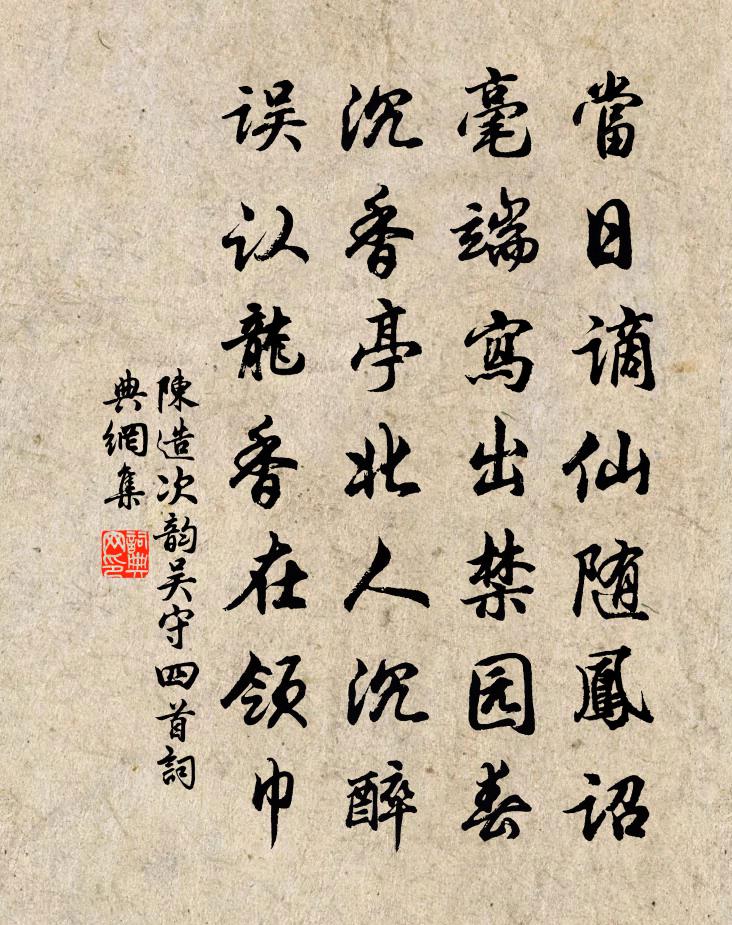 當日謫仙随鳳詔
毫端寫出禁园春
沉香亭北人沉醉
误认龍香在领巾
陳造次韵吴守四首詞
典網集
詞典
网印